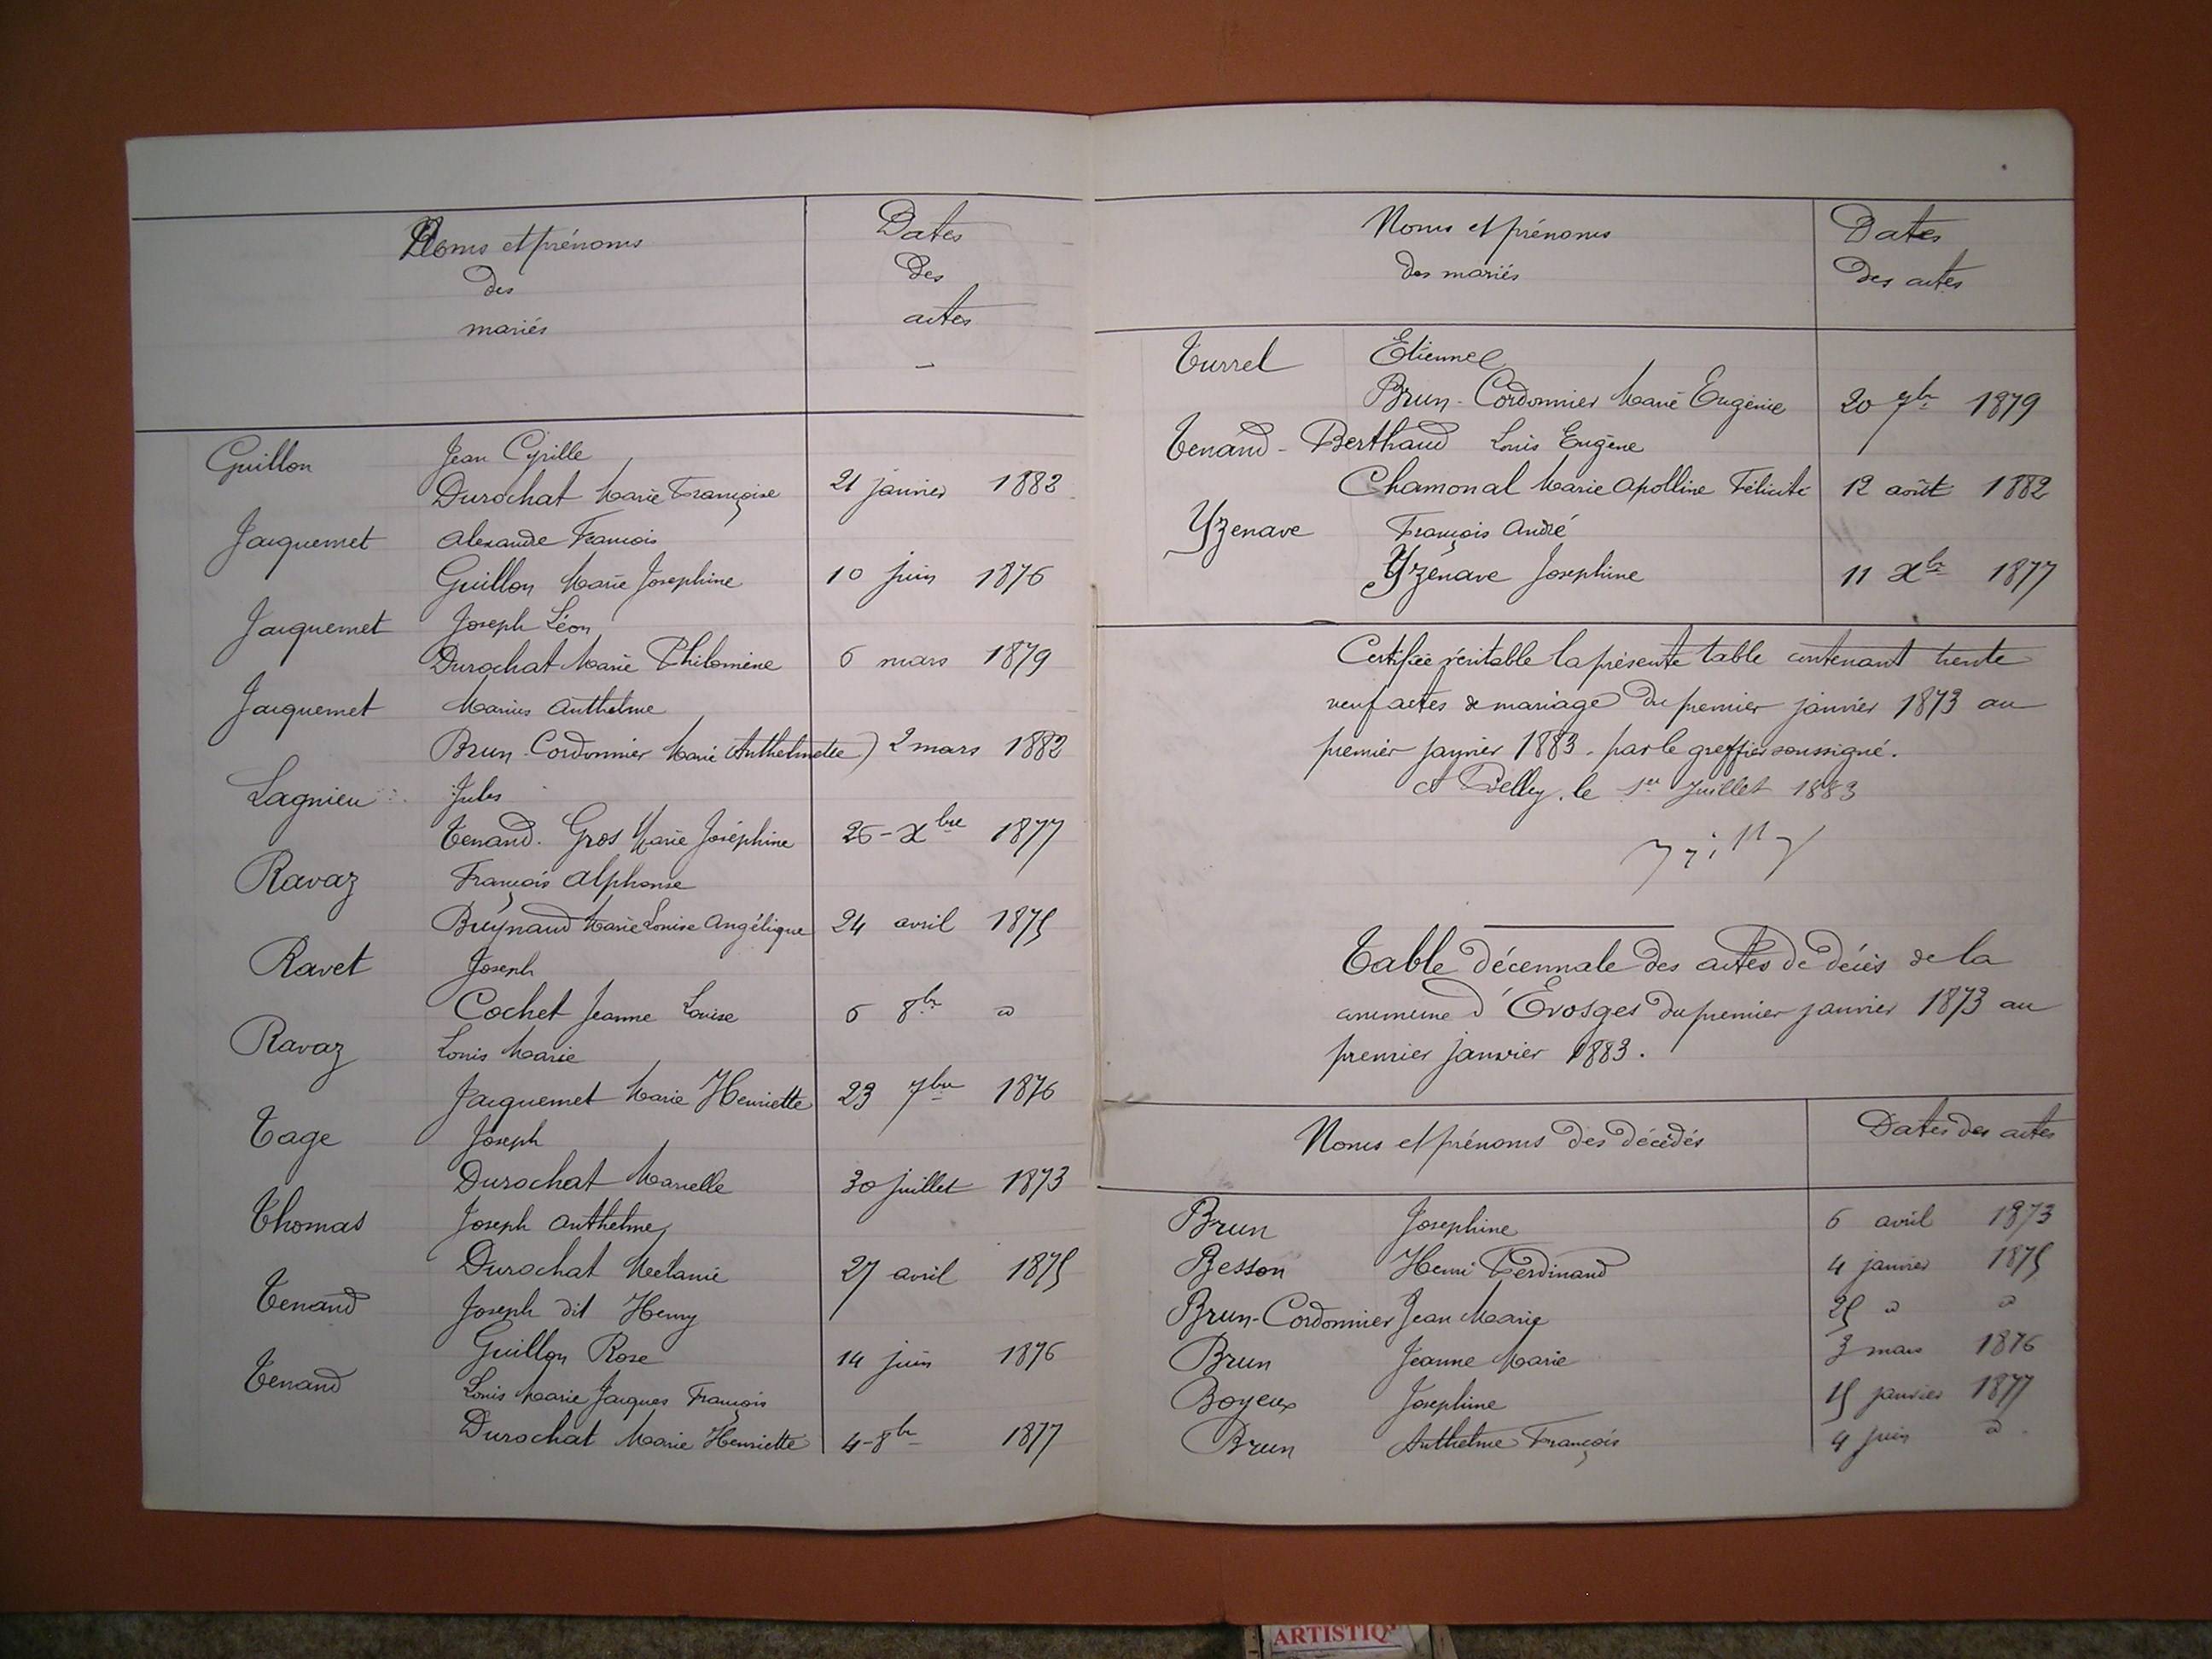 Noms et prénoms
des
mariés
Dates
des
actes
Guillon Jean Cyrille
Durochat Marie Françoise 21 janvier 1882
Jacquemet Alexandre François
Guillon Marie Josephine 10 juin 1876
Jacquemet Joseph Léon
Durochat Marie Philomène 6 mars 1879
Jacquemet Marius Anthelme
Brun-Cordonnier Marie Anthelmette) 2 mars 1882
Lagnieu Jules
Tenand-Gros Marie Joséphine 26-Xbre 1877
Ravaz François Alphonse
Breynaud Marie Louise Angélique 24 avril 1875
Ravet Joseph
Cochet Jeanne Louise 6 8bre d
Ravaz Louis Marie
Jacquemet Marie Henriette 23 7bre 1876
Tage Joseph
Durochat Marcelle 30 juillet 1873
Thomas Joseph Anthelme
Durochat Mélanie 27 avril 1875
Tenand Joseph dit Henry
Guillon Rose 14 juin 1876
Tenand Louis Marie Jacques François
Durochat Marie Henriette 4-8bre 1877
Noms et prénoms
des mariés
Dates
des actes
Turrel Etienne
Brun-Cordonnier Marie Eugénie 20 9bre 1879
Tenand-Berthaud Louis Eugène
Chamonal Marie Apolline Félicité 12 août 1882
Yzenave François André
Yzenave Josephine 11 Xbre 1877
Certifiée véritable la présente table contenant trente
neuf actes de mariage du premier janvier 1873 au
premier janvier 1883. par le greffier soussigné.
A Belley, le 1er Juillet 1883
Table décennale des actes de décès de la
commune d'Evosges du premier janvier 1873 au
premier janvier 1883.
Noms et prénoms des décédés Dates des actes
Brun Josephine 6 avril 1873
Besson Henri Ferdinand 4 janvier 1875
Brun-Cordonnier Jean Marie 25 d d
Brun Jeanne Marie 3 mars 1876
Boyeux Josephine 15 janvier 1877
Brun Anthelme François 4 juin d
ARTISTIQ